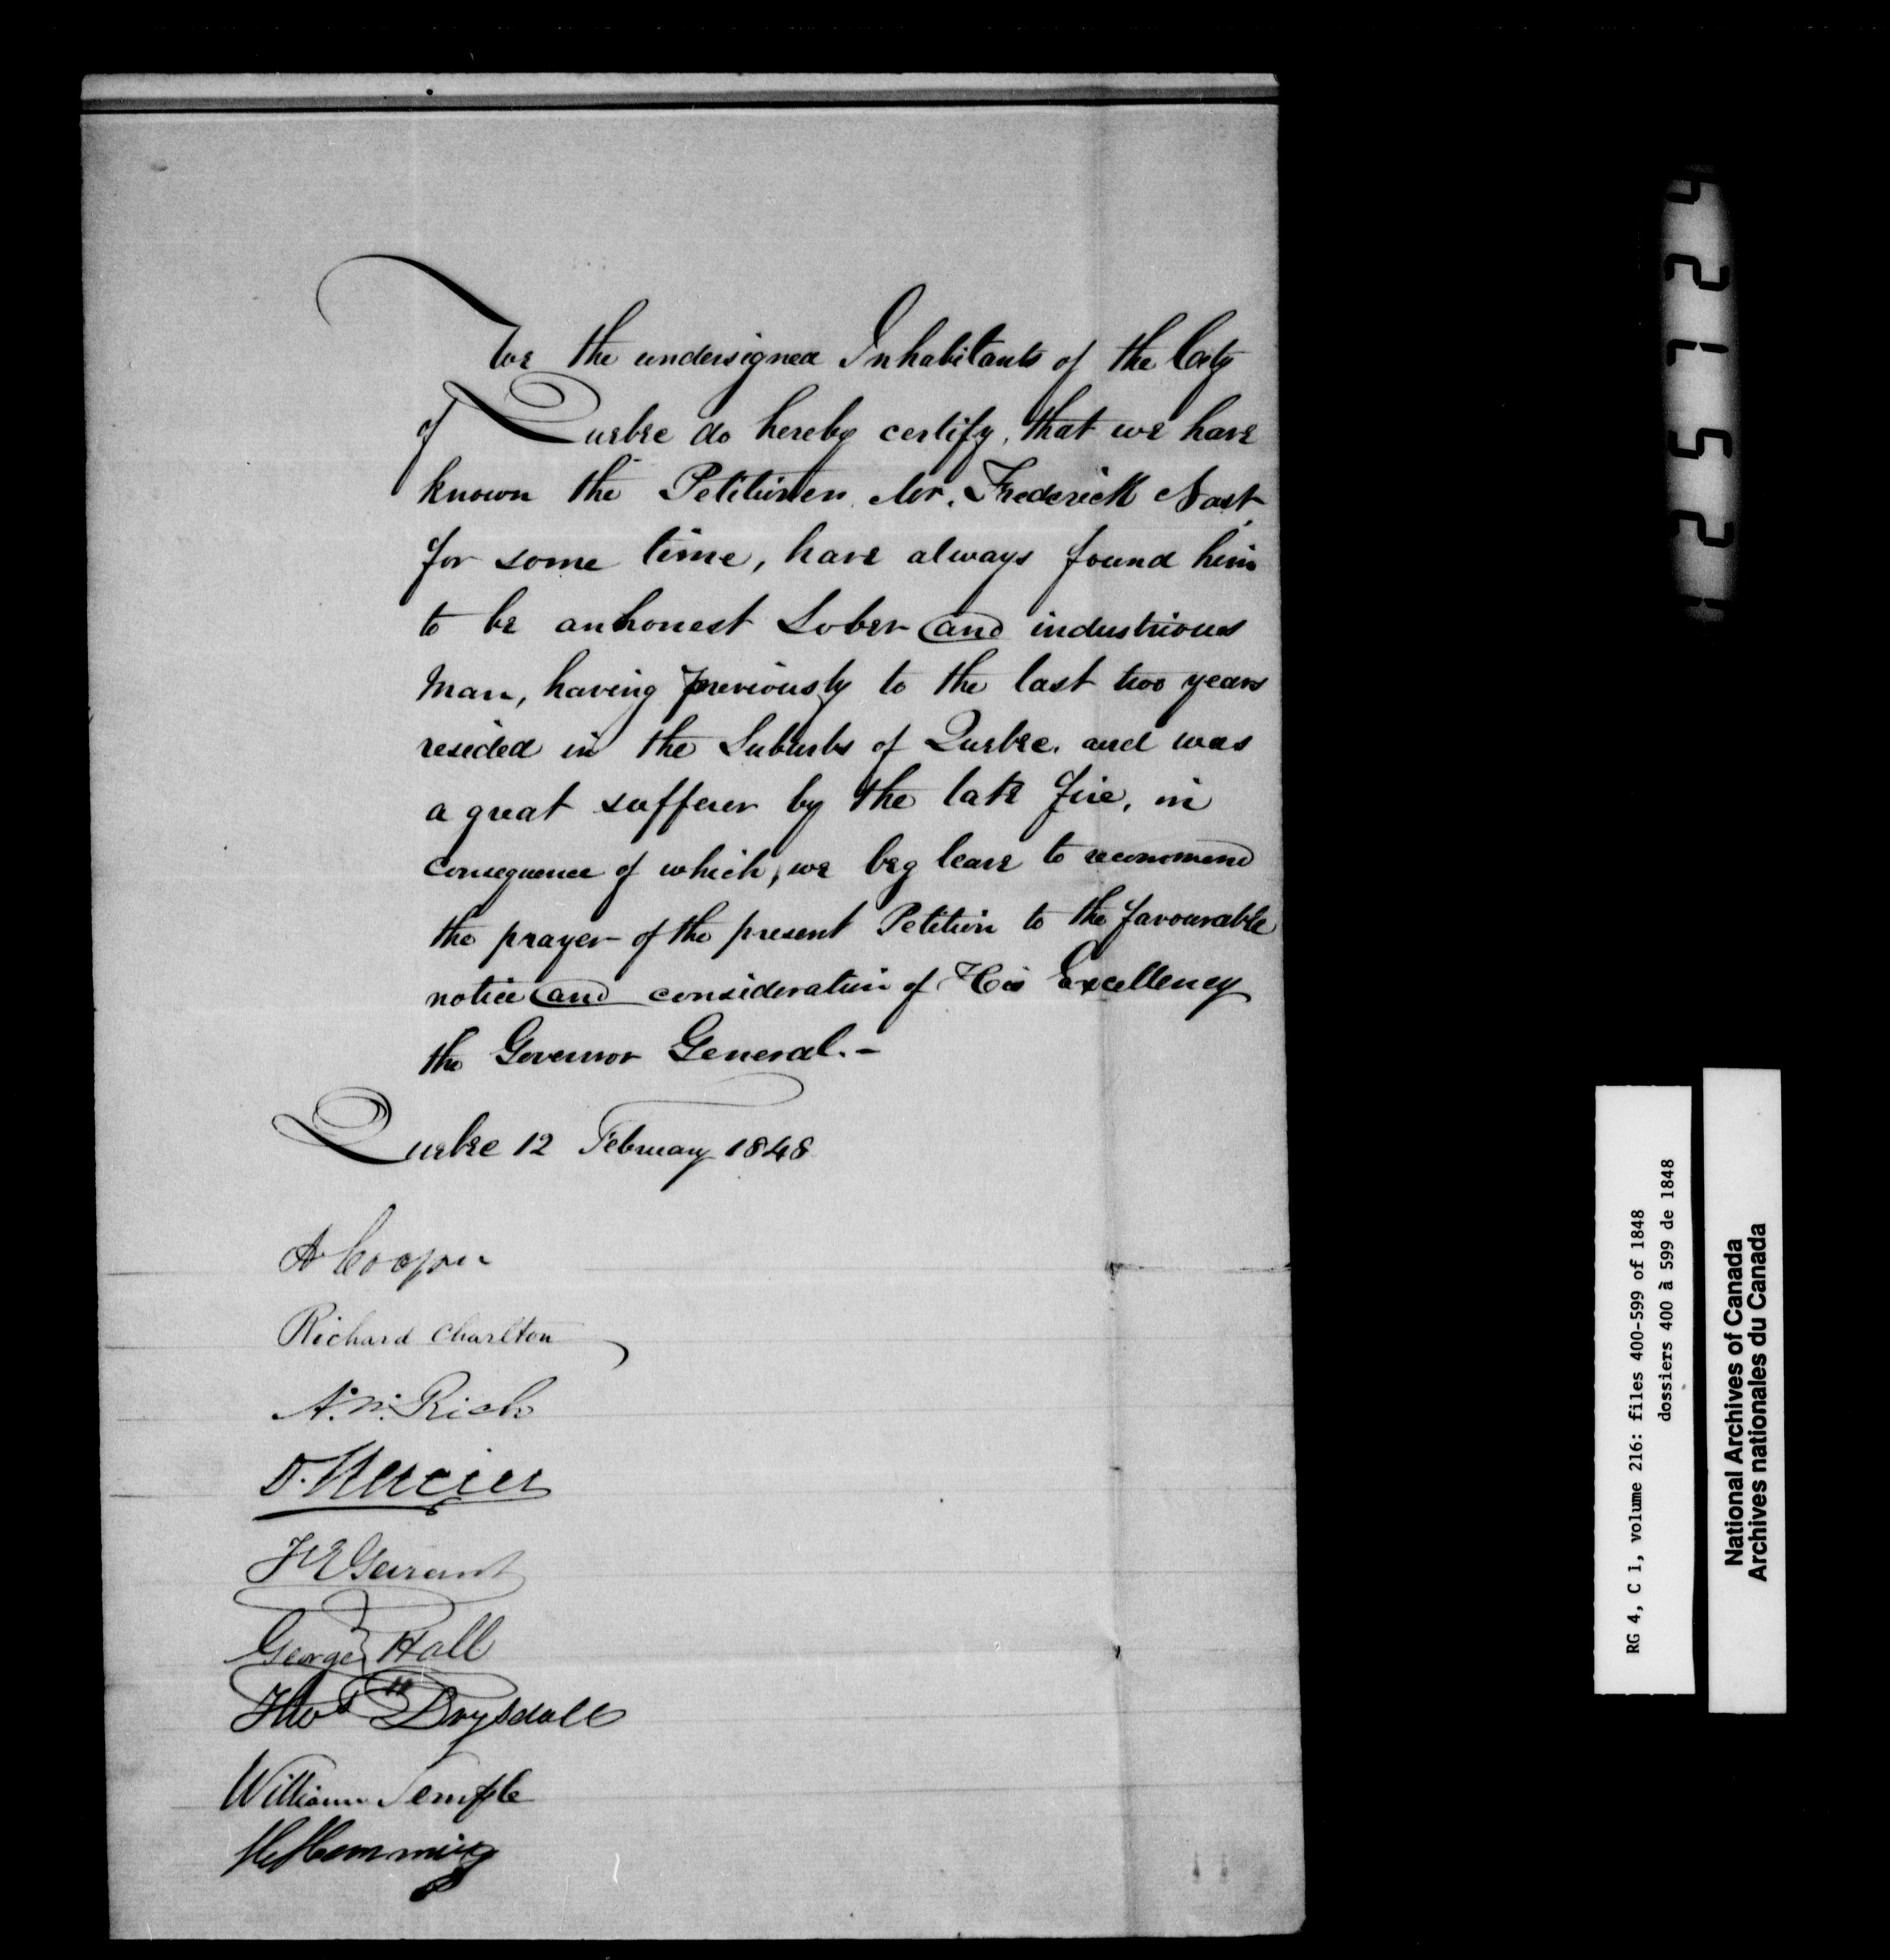 We the undersigned Inhabitants of the City
of Quebec do hereby certify, that we have
known the Petitioner, Mr. Frederick Nast,
for some time, have always found him
to be an honest Sober and industrious
Man, having previously to the last two years
resided in the Suburbs of Quebec, and was
a great sufferer by the late fire, in
consequence of which, we beg leave to recommend
the prayer of the present Petition to the favourable
notice and consideration of His Excellency
the Governor General.-
Quebec 12 February 1848
A Cooper
Richard Charlton
A. W. Rich
D. Mercier
George Hall
Thos Drysdall
William Temple
H Hemming
42152
RG 4, C 1, volume 216: files 400-599 of 1848
dossiers 400 à 599 de 1848
National Archives of Canada
Archives nationales du Canada